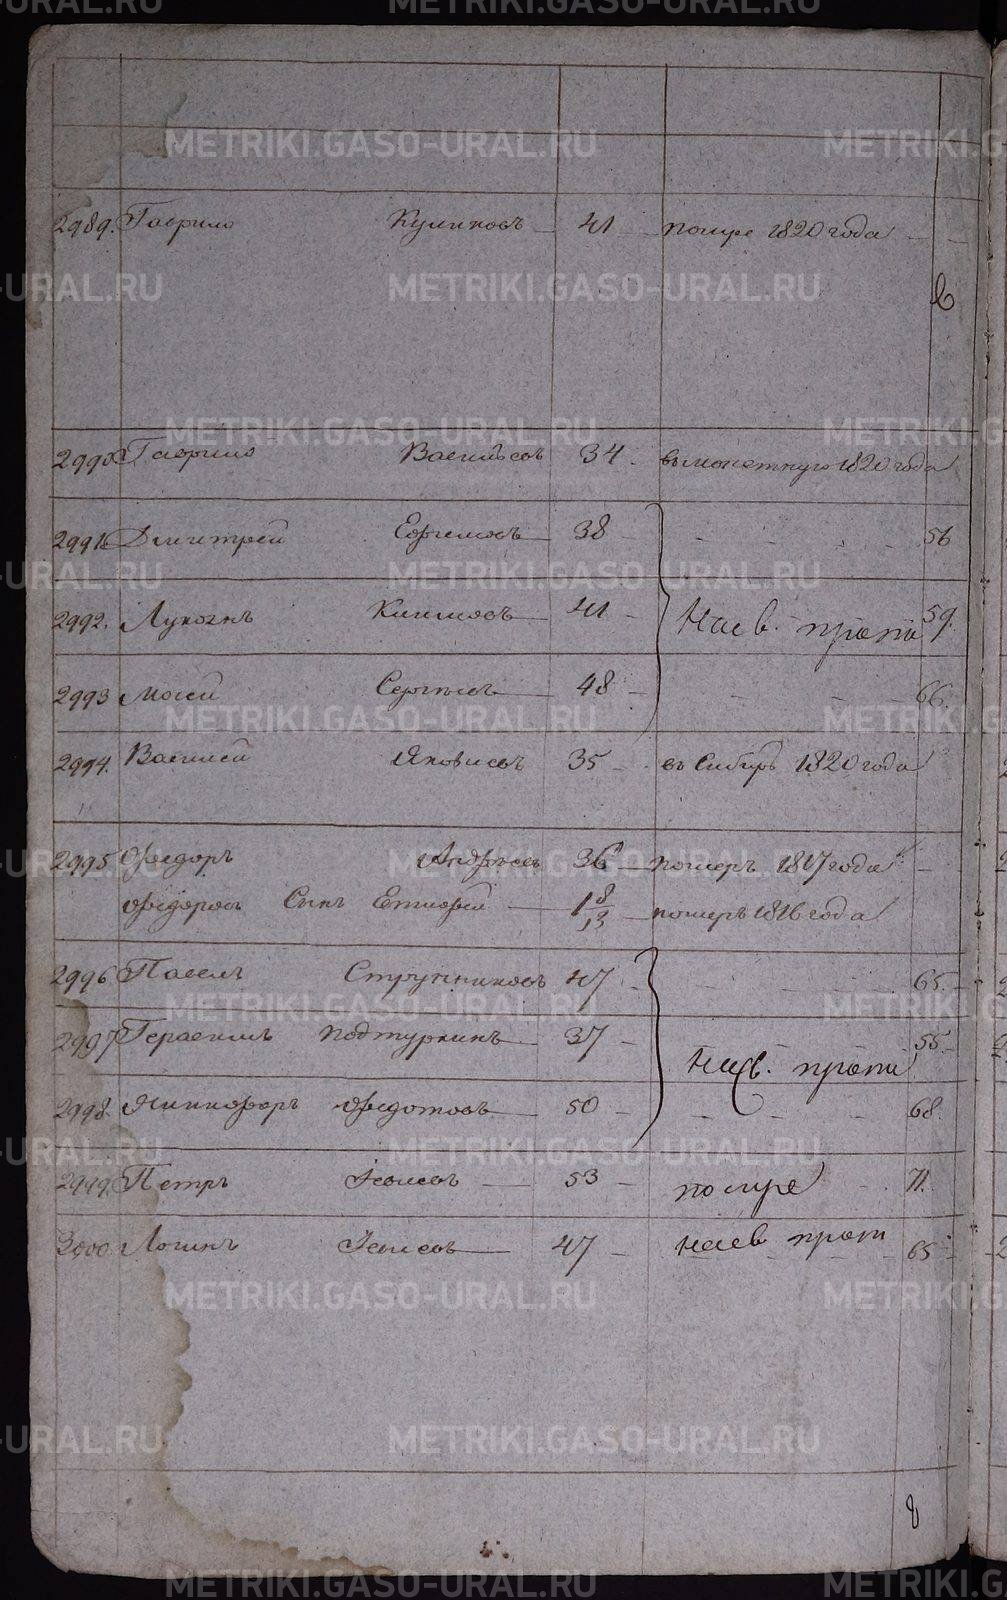 2989. Гаврило Куликовъ 41 помре 1820 года
2990 Гаврило Васильевъ 34. въ монетную 1820 года
2991. Дмитрей Ефимовъ 38 56
2992. Лукоянъ Климовъ 41 59.
2993 Мосей Сергеевъ 48 66.
2994. Василей Яковлевъ 35 въ Сибирь 1820 года
2995 Федоръ Андреевъ 36 померъ 1817 года
Федоровъ Сынъ Тимофей померъ 1816 года
2996 Павелъ Стружниковъ 47 65.
2997 Герасимъ Подтуркинъ 37 55.
2998. Никифоръ Федотовъ 50 68.
2999. Петръ Исаковъ 53 помре 71.
3000. Логинъ 47 65
8
METRIKI.GASO-URAL.RU